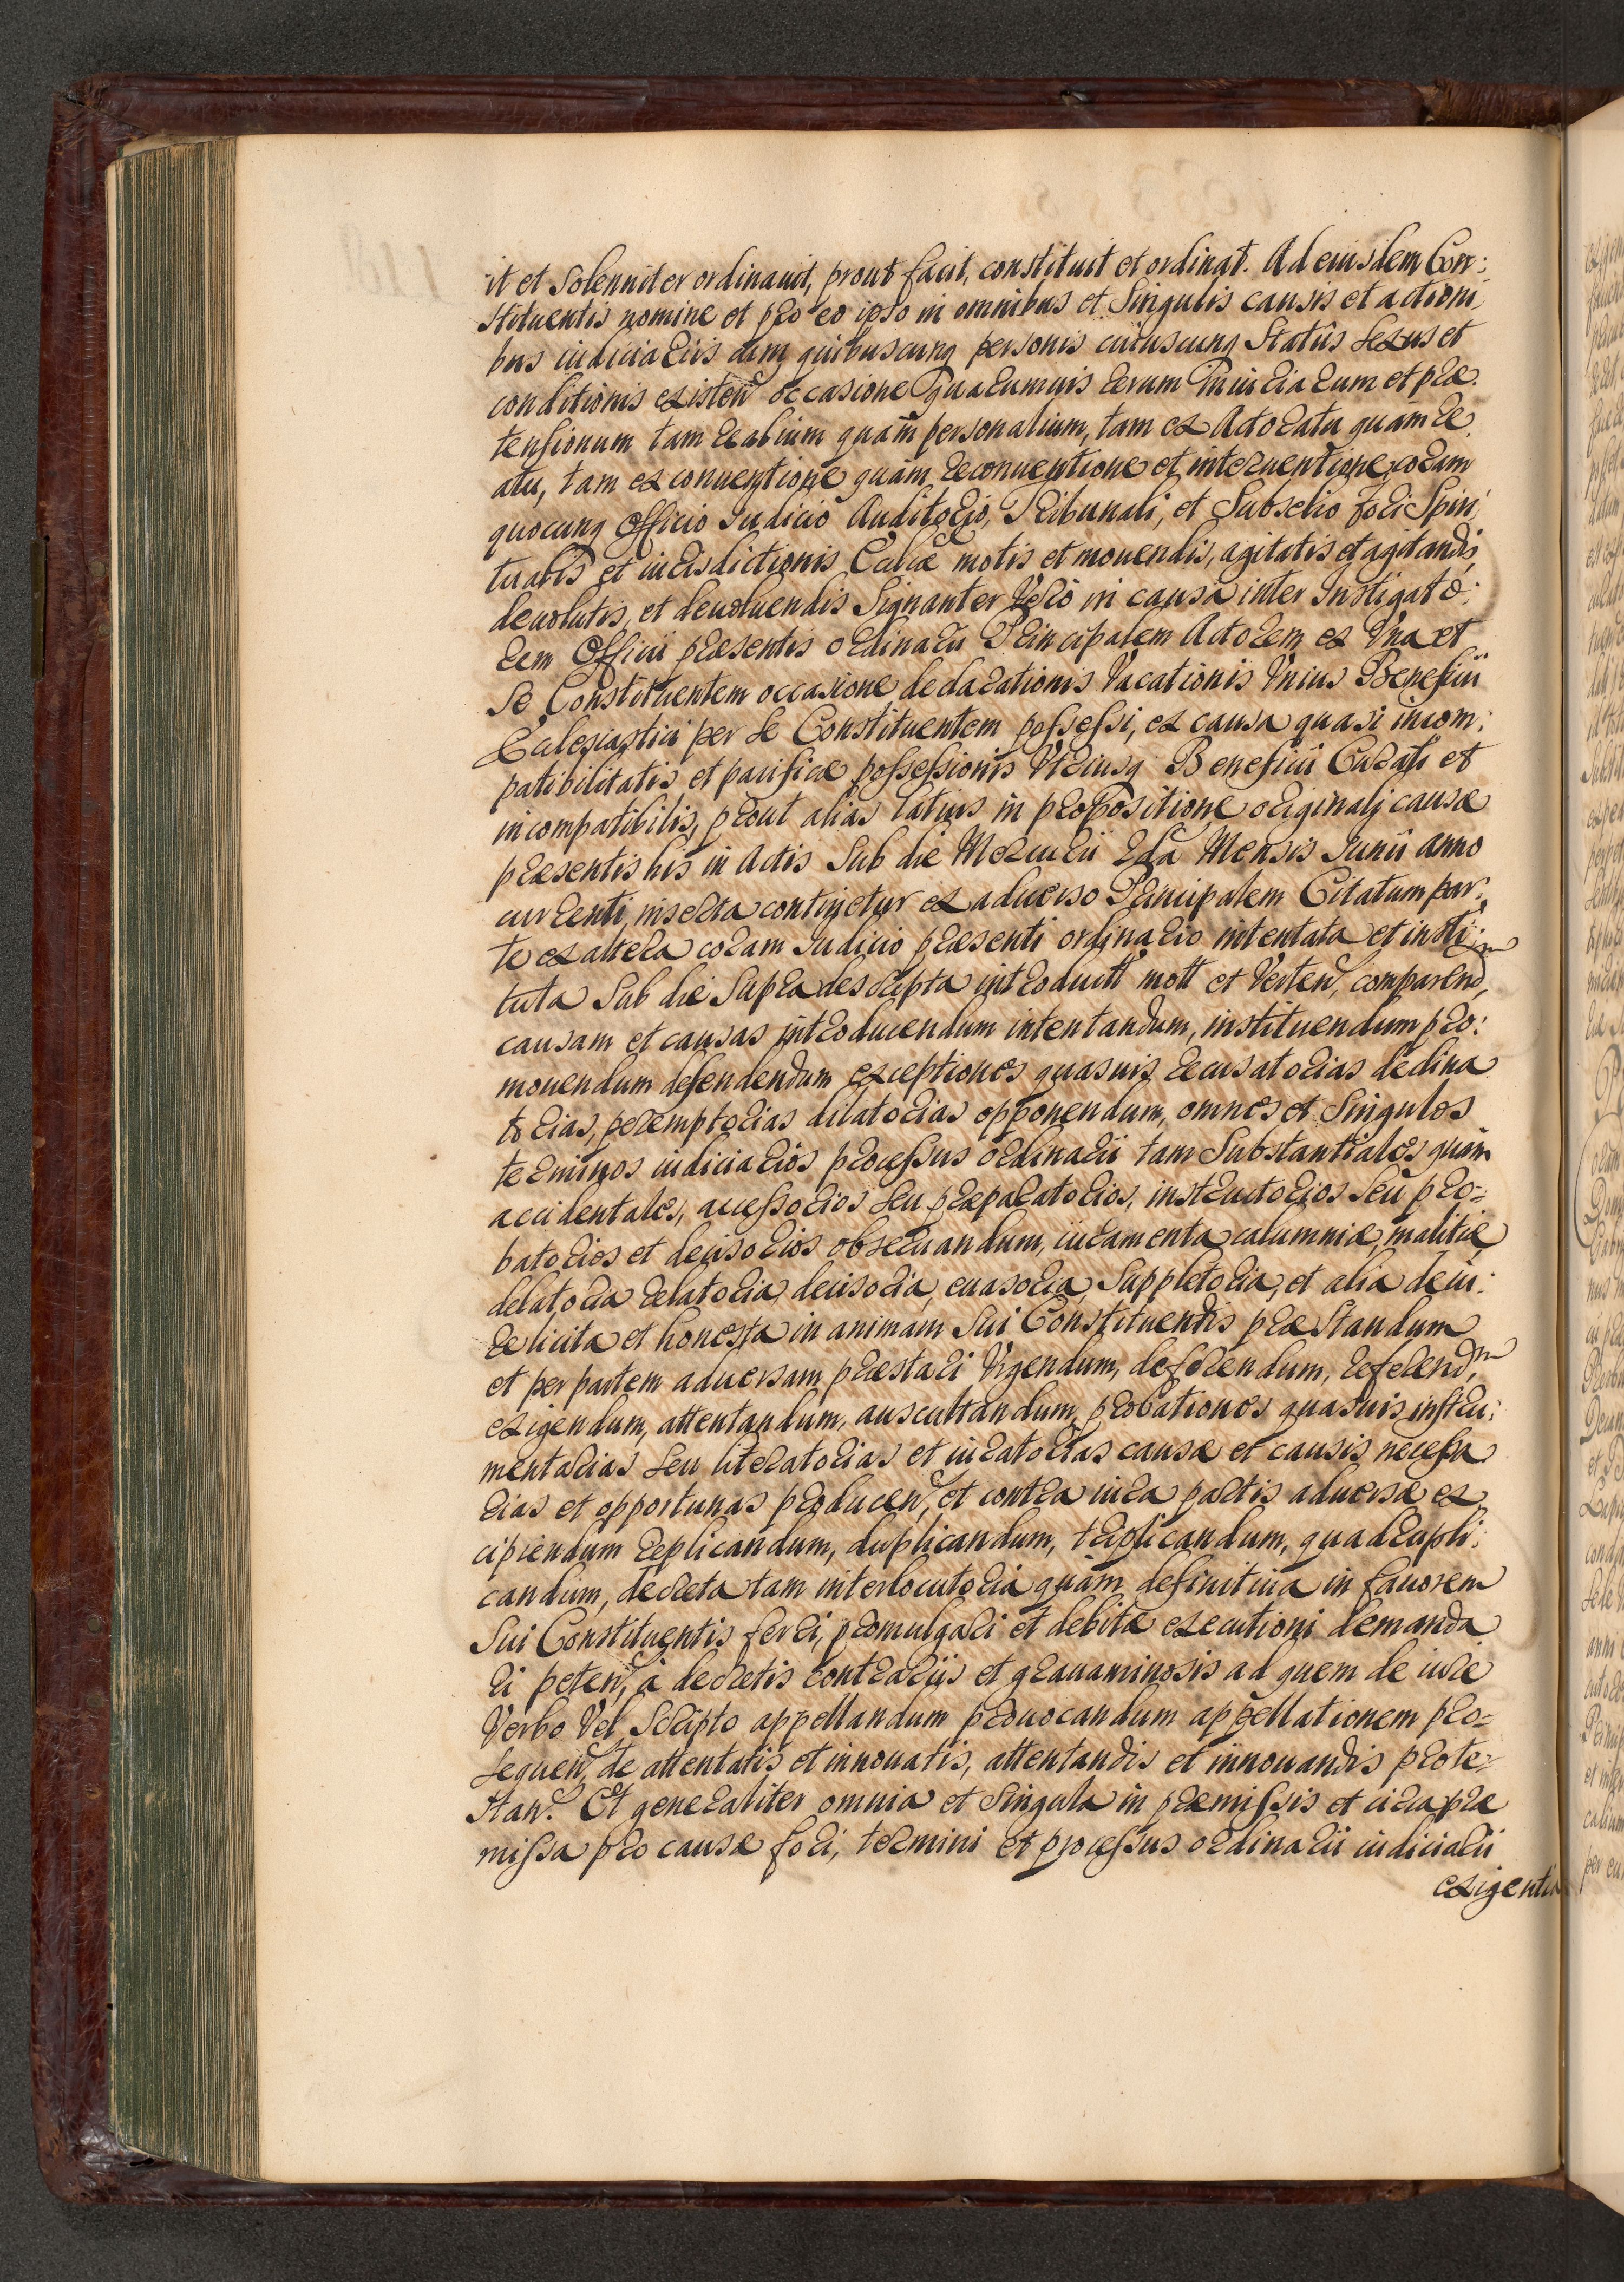 it et Solenniter ordinauit, prout facit, constituit et ordinat. Ad eiusdem Con:
Stituentis nomine et pro eo ipso in omnibus et Singulis causis et actioni
bus iudiciariis cum quibuscunq personis cuiuscunq Status Sexus et
conditionis existen occasione quarumuis rerum Iniuriarum et præ:
tensionum tam realium quam personalium, tam ex Actoratu quam Re
atu, tam ex conuentione quàm reconuentione et interuentione, coram
quocunq Officio Iudicio Auditorio, Tribunali, et Subselio fori Spiri:
tualis et iurisdictionis Eccliæ motis et mouendis, agitatis et agitandis,
deuolutis, et deuoluendis Signanter Verò in causa inter Instigato:
rem Officii præsentis ordinarii Principalem Actorem ex Vna et
Se Constituentem occasione declarationis Vacationis Vnius Beneficii
Ecclesiastici per Se Constituentem possessi, ex causa quasi incom:
patibilitatis et pacificæ possessionis Vtriusq Beneficii Curati et
incompatibilis, prout alias latius in propositione originali causæ
præsentis his in Actis Sub die Mercurii 2da Mensis Iunii anno
currenti inserta continetur ex aduerso Principalem Citatum par:
te ex altera coram Iudicio præsenti ordinario intentata et insti:
tuta Sub die Supra descripta introductt mott et Verten, comparendm,
causam et causas introducendum intentandum, instituendum pro:
mouendum defendendum exceptiones quasuis recusatorias declina
torias, peremptorias dilatorias opponendum, omnes et Singulos
terminos iudiciarios processus ordinarii tam Substantiales quàm
accidentales, accessorios Seu præparatorios, instructorios Seu pro=
batorios et decisorios obseruandum, iuramenta calumniæ, malitiæ,
delatoria relatoria, decisoria, euasoria, Suppletoria, et alia de iu:
re licita et honesta in animam Sui Constituentis præstandum
et per partem aduersam præstari Vrgendum, deferendum, referendm,
exigendum, attentandum, auscultandum, probationes quasuis instru:
mentarias Seu literatorias et iuratorias causæ et causis necessa
rias et opportunas producen, et contra iura partis aduersæ ex
cipiendum replicandum, duplicandum, triplicandum, quadrupli:
candum, decreta tam interlocutoria quàm definitiua in fauorem
Sui Constituentis ferri, promulgari et debitæ executioni demanda
ri peten, à decretis contrariis et grauaminosis ad quem de iure
Verbo Vel Scripto appellandum prouocandum appellationem pro=
sequen, de attentatis et innouatis, attentandis et innouandis prote=
stan. Et generaliter omnia et Singula in præmissis et circa præ
missa pro causæ fori, termini et processus ordinarii iudiciarii
exigentia